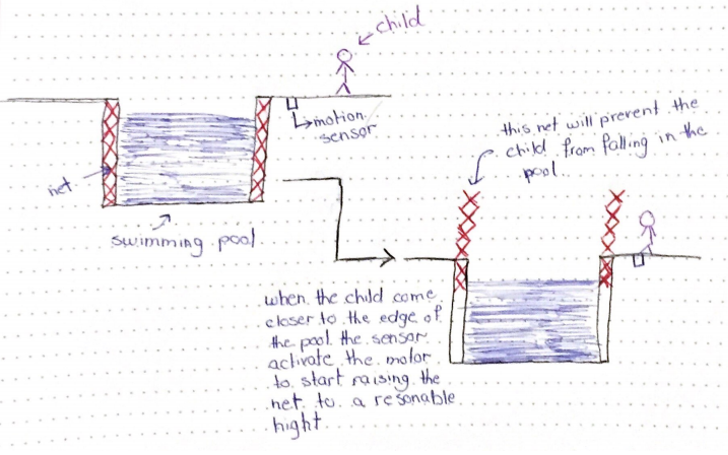 child
motion
sensor
net
swimming pool
this net will prevent the
child from falling in the
pool
when the child come
closer to the edge of
the pool the sensor
activate the motor
to start raising the
net to a resonable
hight